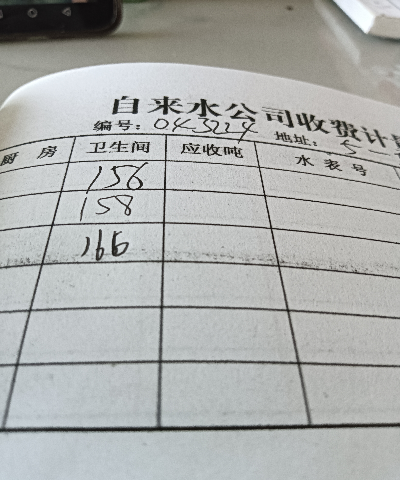 自来水公司收费计
编号: 043224 地址: 5
厨房 卫生间 应收吨 水表号
156
158
166